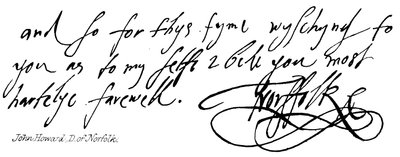 and so for thys tyme wyschyng to
you as to my selff I bede you most
hartelye farewell. Norffolk
John Howard, D. of Norfolk.